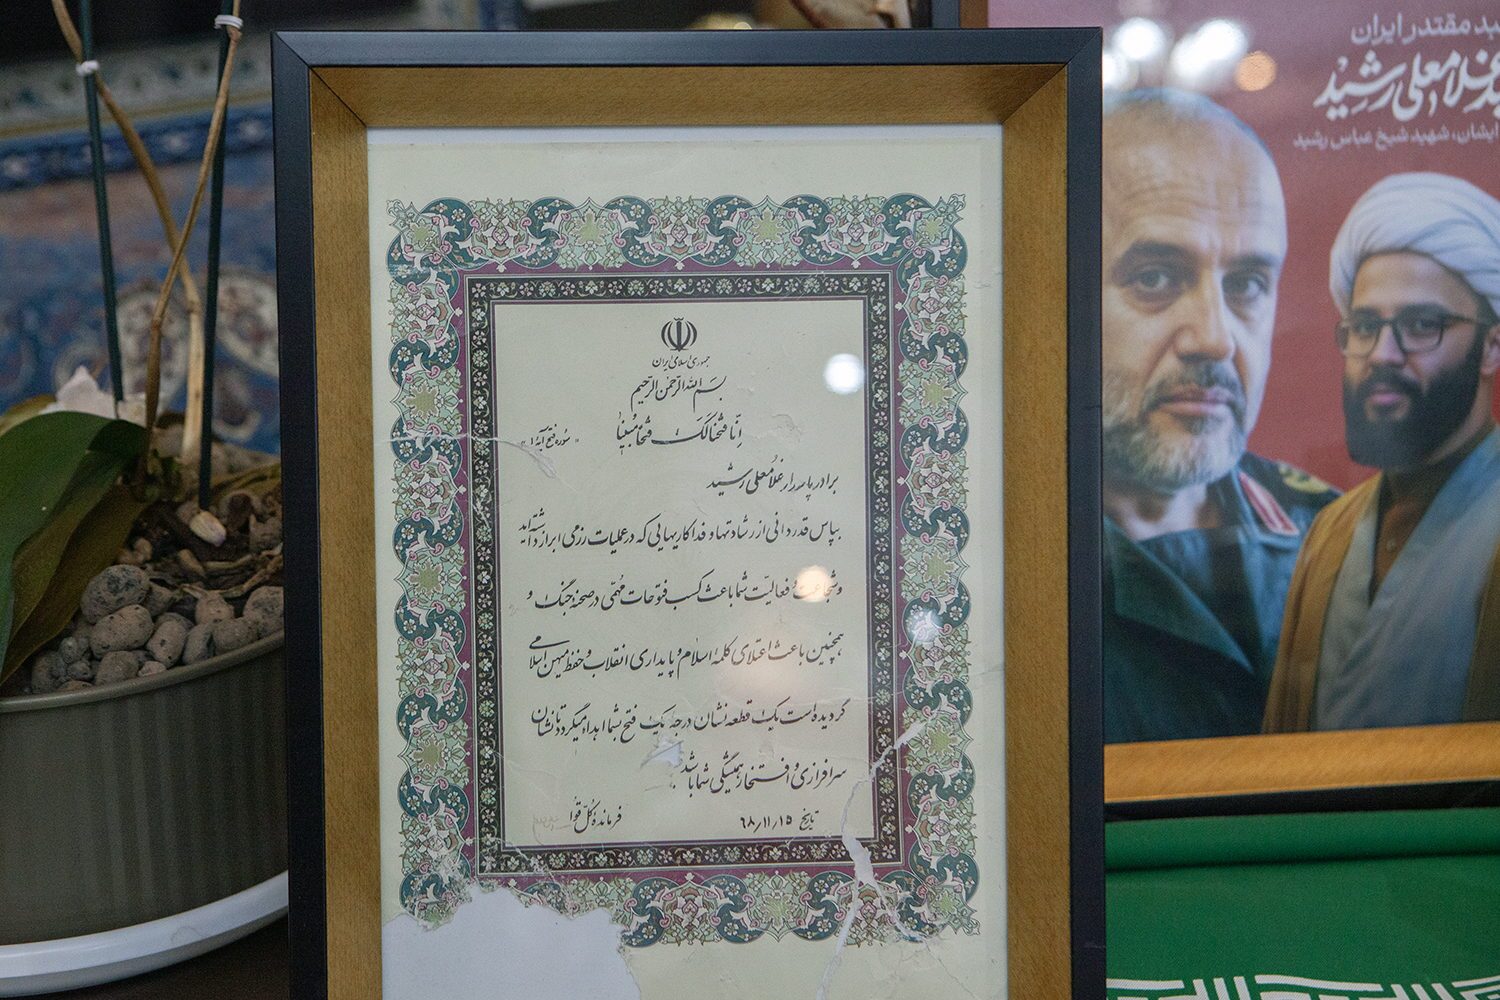 جمهوری اسلامی ایران
بسم الله الرحمن الرحیم
اِنّا فَتَحْنا لَکَ فَتْحاً مُبیناً
« سوره فتح آیه ۱ »
برادر پاسدار غلامعلی رشید
بپاس قدردانی از رشادتها و فداکاریهایی که در عملیات رزمی ابراز داشته‌اید
و شجاعت و فعالیّت شما باعث کسب فتوحات مُهمّی در صحنه جنگ و
همچنین باعث اعتلای کلمه اسلام و پایداری انقلاب و حفظ میهن اسلامی
گردیده است یک قطعه نشان درجه یک فتح بشما اهدا میگردد تا نشان
سرافرازی و افتخار همیشگی شما باشد.
تاریخ ۶۸/۱۱/۱۵
فرمانده کُلّ قُوا
مقتدر ایران
غلامعلی رشید
ایشان، شهید شیخ عباس رشید